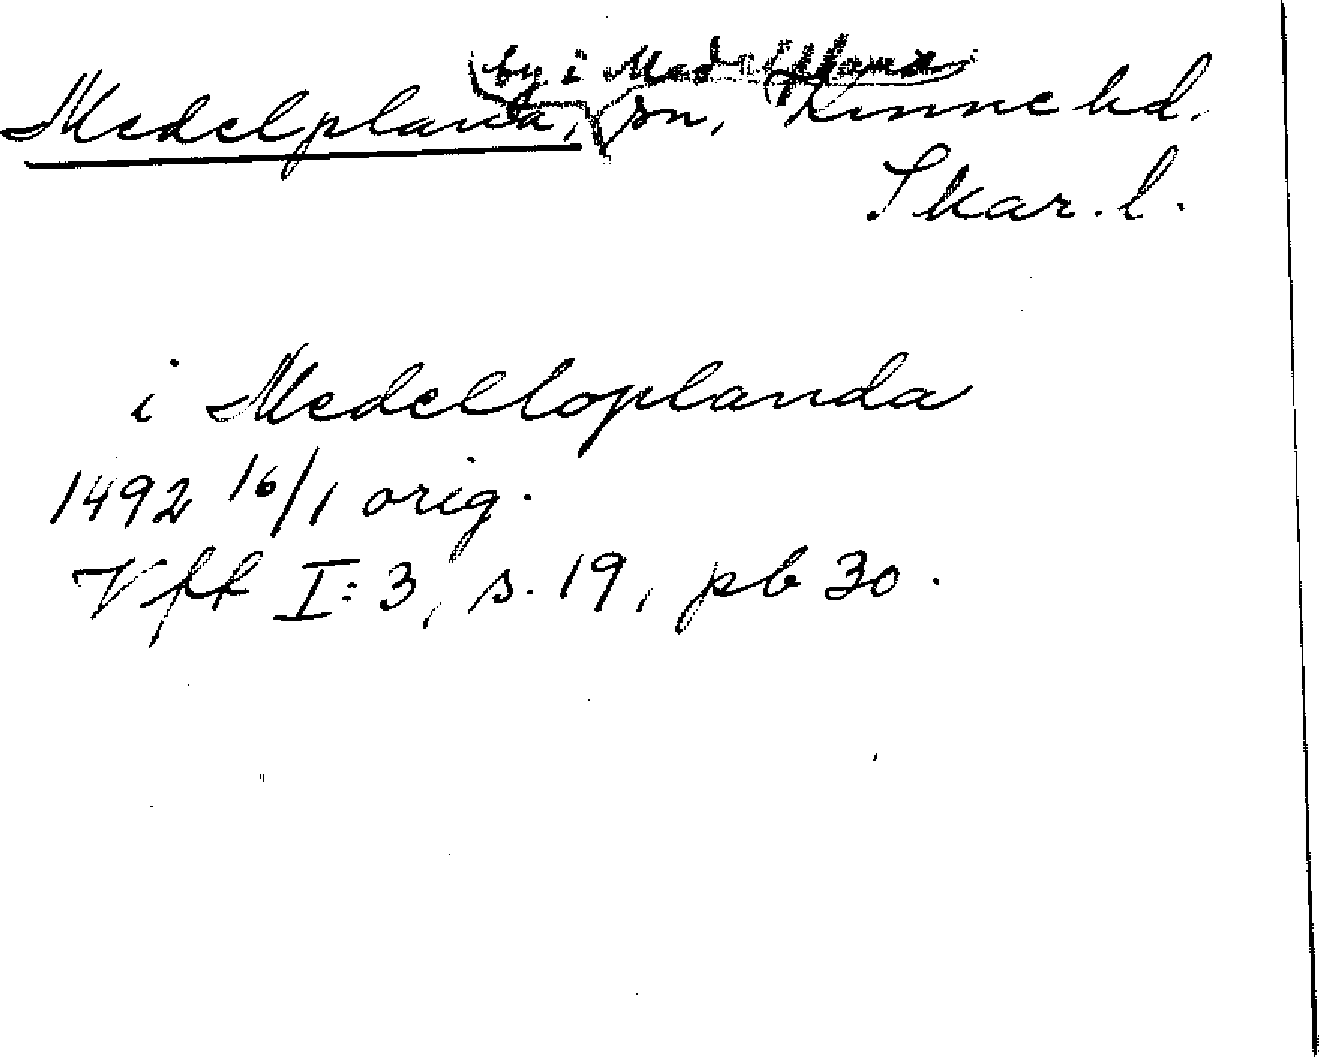 by i Medelplana
Medelplana, sn, Kinne hd.
Skar. l.
i Medelloplanda
1492 16/1 orig.
Vff I:3, s. 19, pb 30.